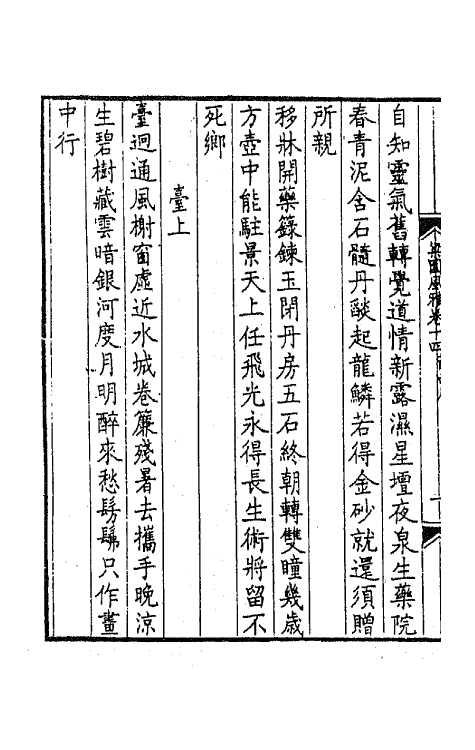 梁園風雅卷十四
自知靈氣舊轉覺道情新露濕星壇夜泉生藥院
春青泥舍石髓丹醶起龍鱗若得金砂就還須贈
所親
移牀開藥籙鍊玉閉丹房五石終朝轉雙瞳幾歲
方壺中能駐景天上任飛光永得長生術將留不
死鄉
臺上
臺迥通風榭窗虛近水城卷簾殘暑去攜手晚涼
生碧樹藏雲暗銀河度月明醉來愁髣髴只作畫
中行